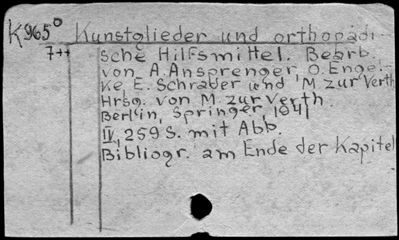 K965° Kunstglieder und orthopädi-
7++ sche Hilfsmittel. Bearb.
von A. Ansprenger, O. Engel-
ke E. Schrader und M. zur Verth
Hrsg. von M. zur Verth.
Berlin, Springer, 1941
IV, 259 S. mit Abb.
Bibliogr. am Ende der Kapitel